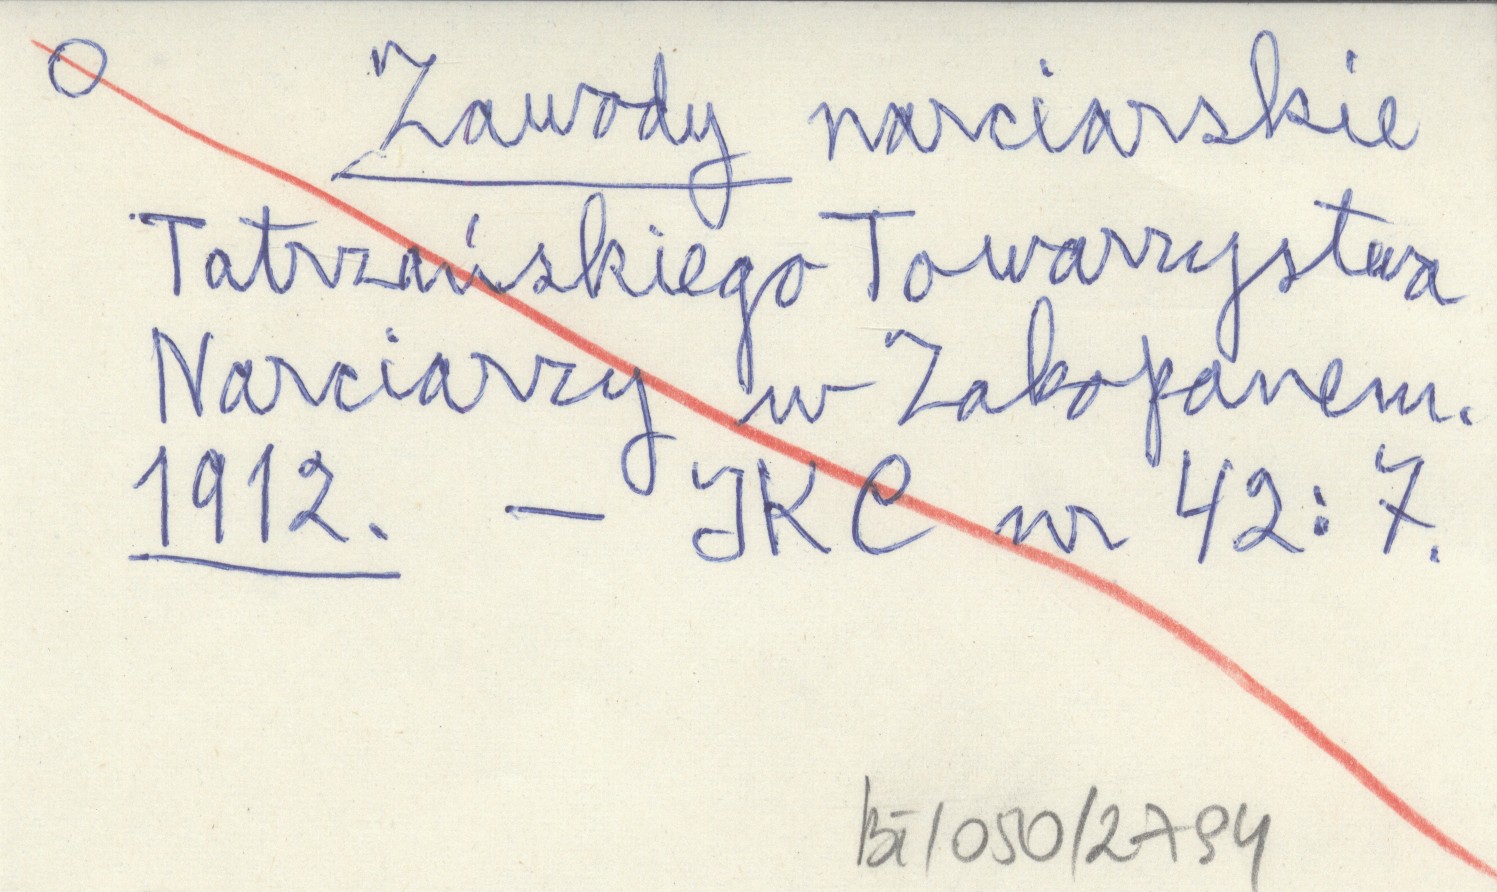 O Zawody narciarskie
Tatrzańskiego Towarzystwa
Narciarzy w Zakopanem.
1912. – JKC nr 42: 7.
BI/050/2794